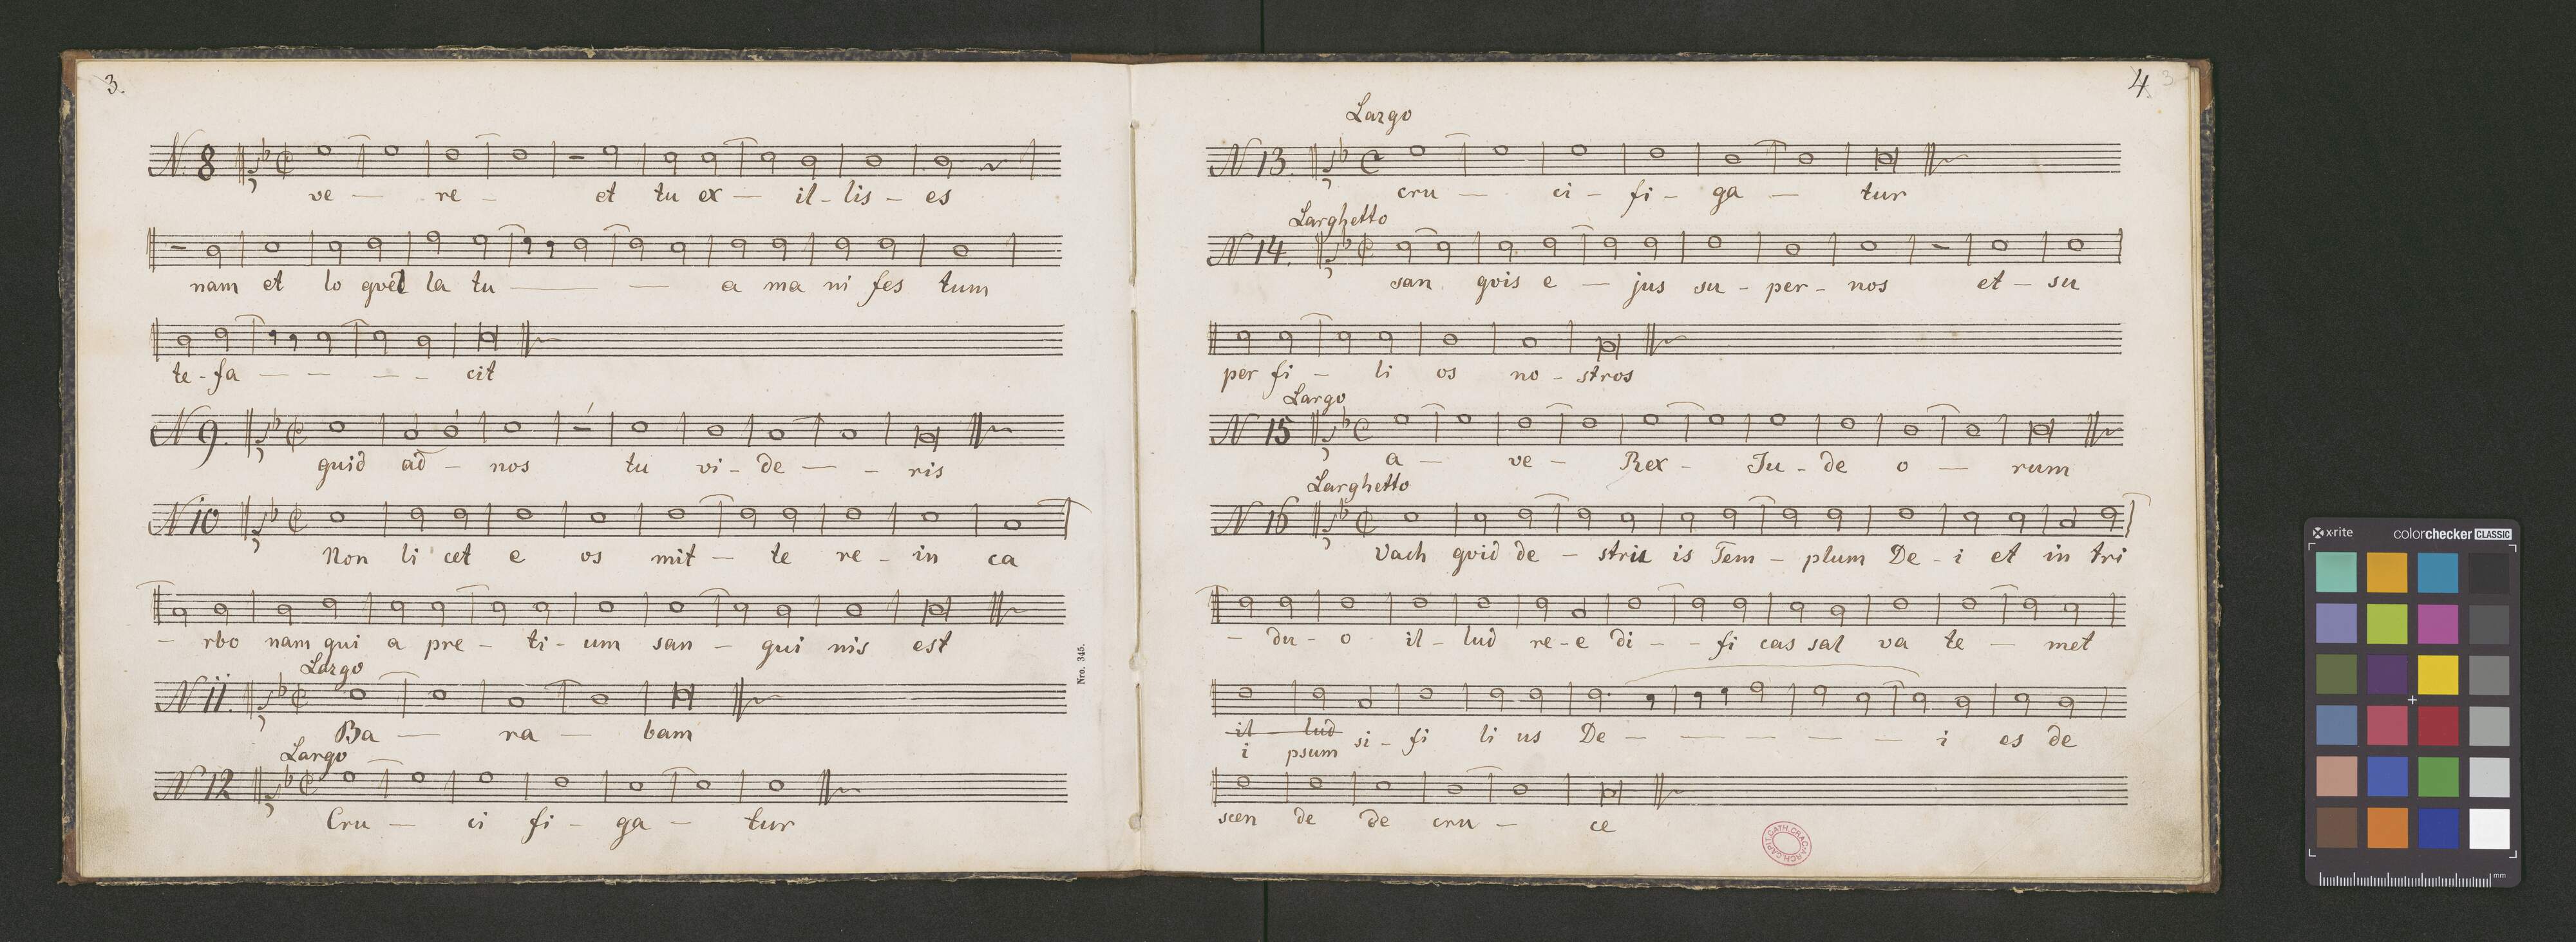 3.
N. 8
ve — re - et tu ex — il - lis - es
nam et lo qvel la tu — — a ma ni fes tum
te - fa — — — - cit
N 9.
quid ad - nos tu vi - de — - ris
N 10
Non li cet e os mit — te re - in ca
- rbo nam qui a pre - ti - um san — gui nis est
Largo
N 11.
Ba — ra — bam
Largo
N 12
Cru — ci fi - ga - tur
Nro. 345.
4 3
Largo
N 13.
cru — ci - fi - ga — tur
Larghetto
N 14.
san gvis e — jus su - per - nos et - su
per fi - li os no - stros
Largo
N 15
a — ve - Rex - Ju - de o — rum
Larghetto
N 16
Vach qvid de - stru is Tem - plum De - i et in tri
- du - o il - lud re - e di - - fi cas sal va te — met
il lud
i psum si - fi li us De — — — — — — i es de
scen de de cru — ce
x-rite colorchecker CLASSIC
mm